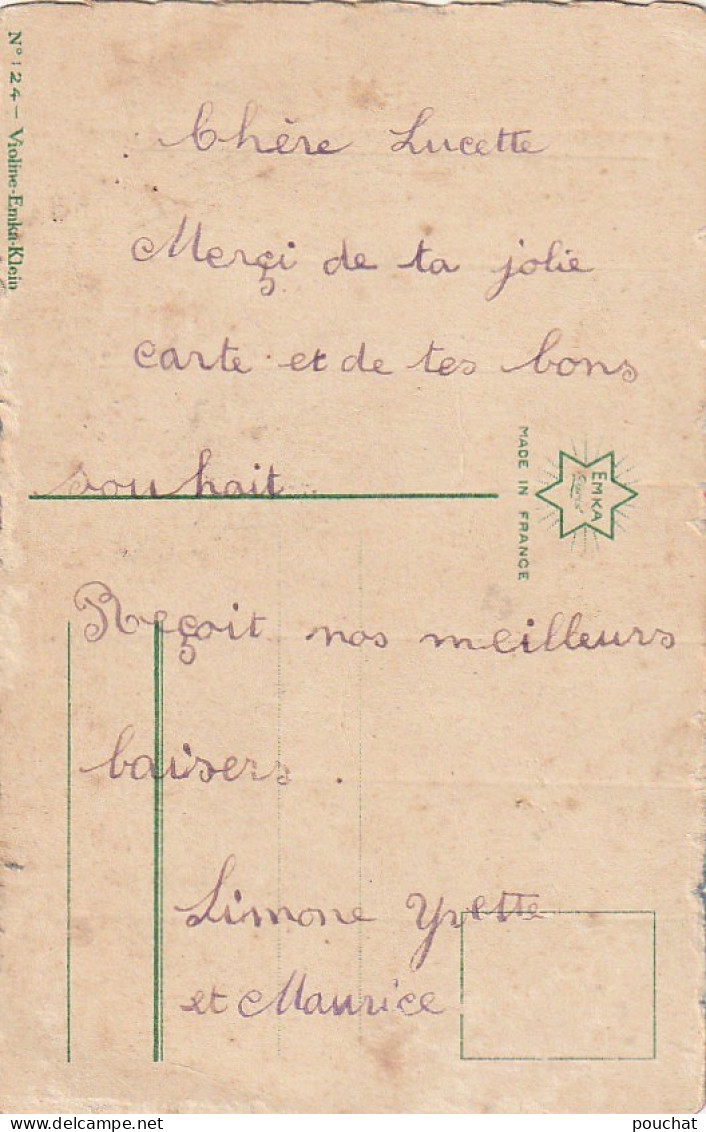 N° 124 — Violine-Emka-Klein
Chère Lucette
Merçi de ta jolie
carte et de tes bons
souhait
MADE IN FRANCE
EMKA
Reçoit nos meilleurs
baisers.
Simone Yvette
et Maurice
pouchat